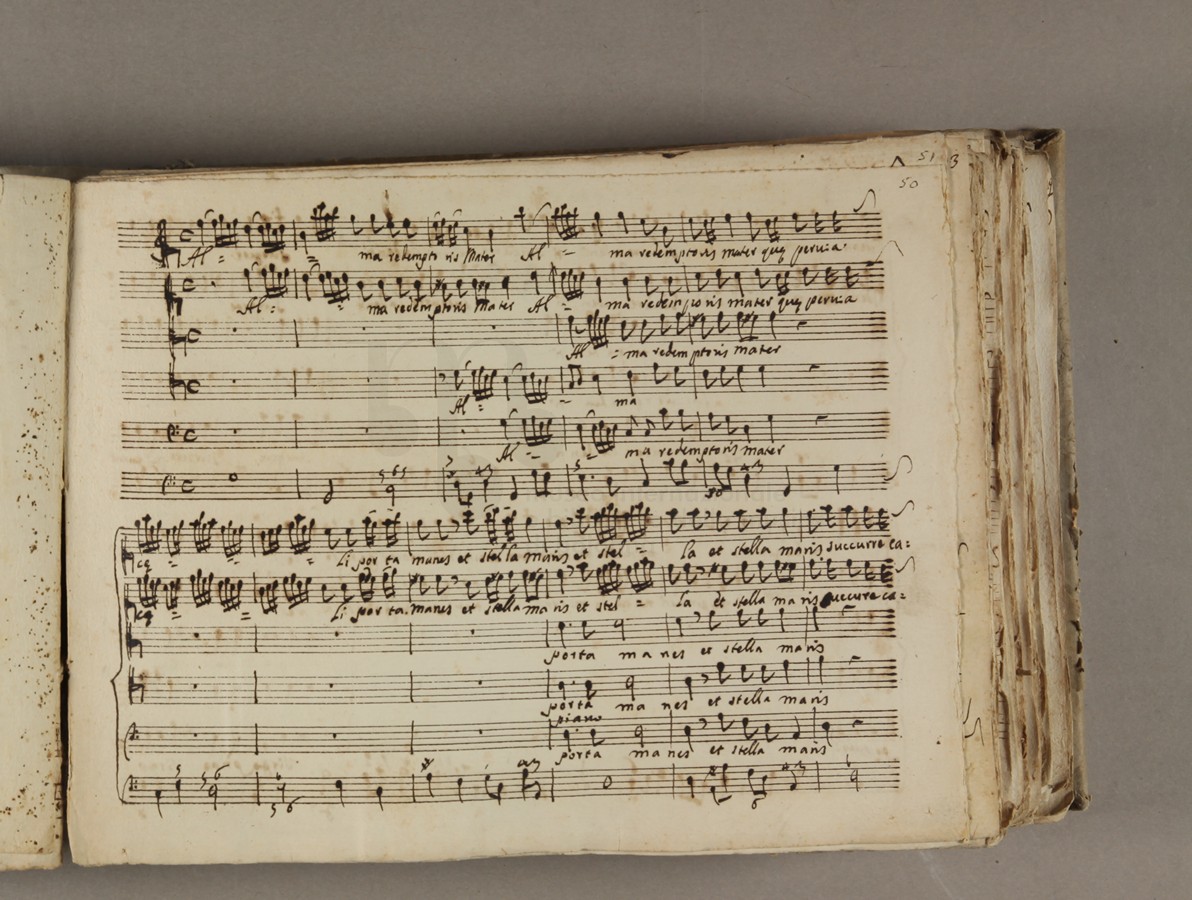 51 3
50
Al = = ma redempto ris Mater Al = ma redemptoris mater quę pervia
Al = = ma redemptoris Mater Al = ma redemptoris mater quę pervia
Al = ma redemptoris mater
Al = = ma
Al = = ma redemptoris mater
5 6 5
cę = = li por ta manes et stella maris et stel = la et stella maris succurre ca=
cę = = li por ta manes et stella ma ris et stel = la et stella ma ris succurre ca=
porta ma nes et stella maris
porta ma nes et stella maris
piano
porta ma nes et stella maris
5 5 6
5 6
6